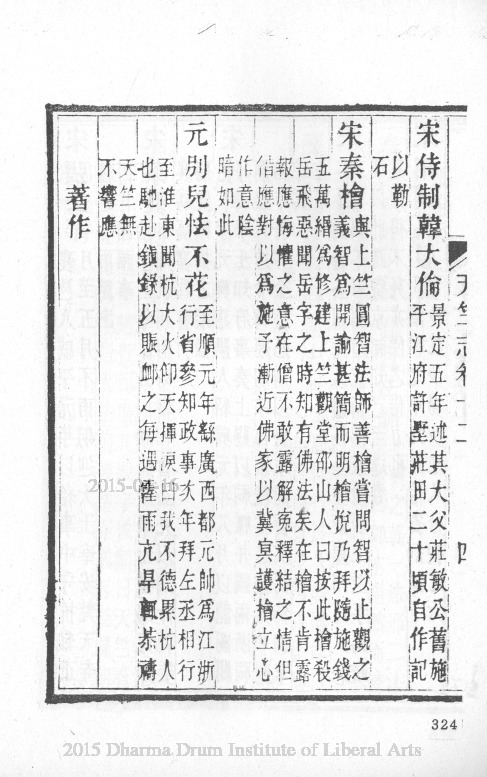 天竺志卷十二
四
宋侍制韓大倫景定五年述其大父莊敏公舊施
平江府許墅莊田二十頃自作記
以勒
石
宋秦檜與上竺圓智法師善檜嘗問智以止觀之
義智為開諭甚簡而明檜悅乃拜隨施錢
五萬緡為修建上竺觀堂邵山人曰按此檜殺
岳飛惡聞岳字之時知有佛法矣在檜不肯露
報應悔懼之意在僧不敢露解寃釋結之情但
循應對以為施予漸近佛家以冀冥護檜立心
作意陰
暗如此
元別兒怯不花至順元年繇廣西都元帥為江浙
行省參知政事次年拜左丞相行
至淮東聞杭大火仰天揮淚曰我不德累杭人
也馳赴鎮錄以賑卹之每遇霪雨亢旱輒恭禱
天竺無
不響應
著作
2015-04-16
324
2015 Dharma Drum Institute of Liberal Arts